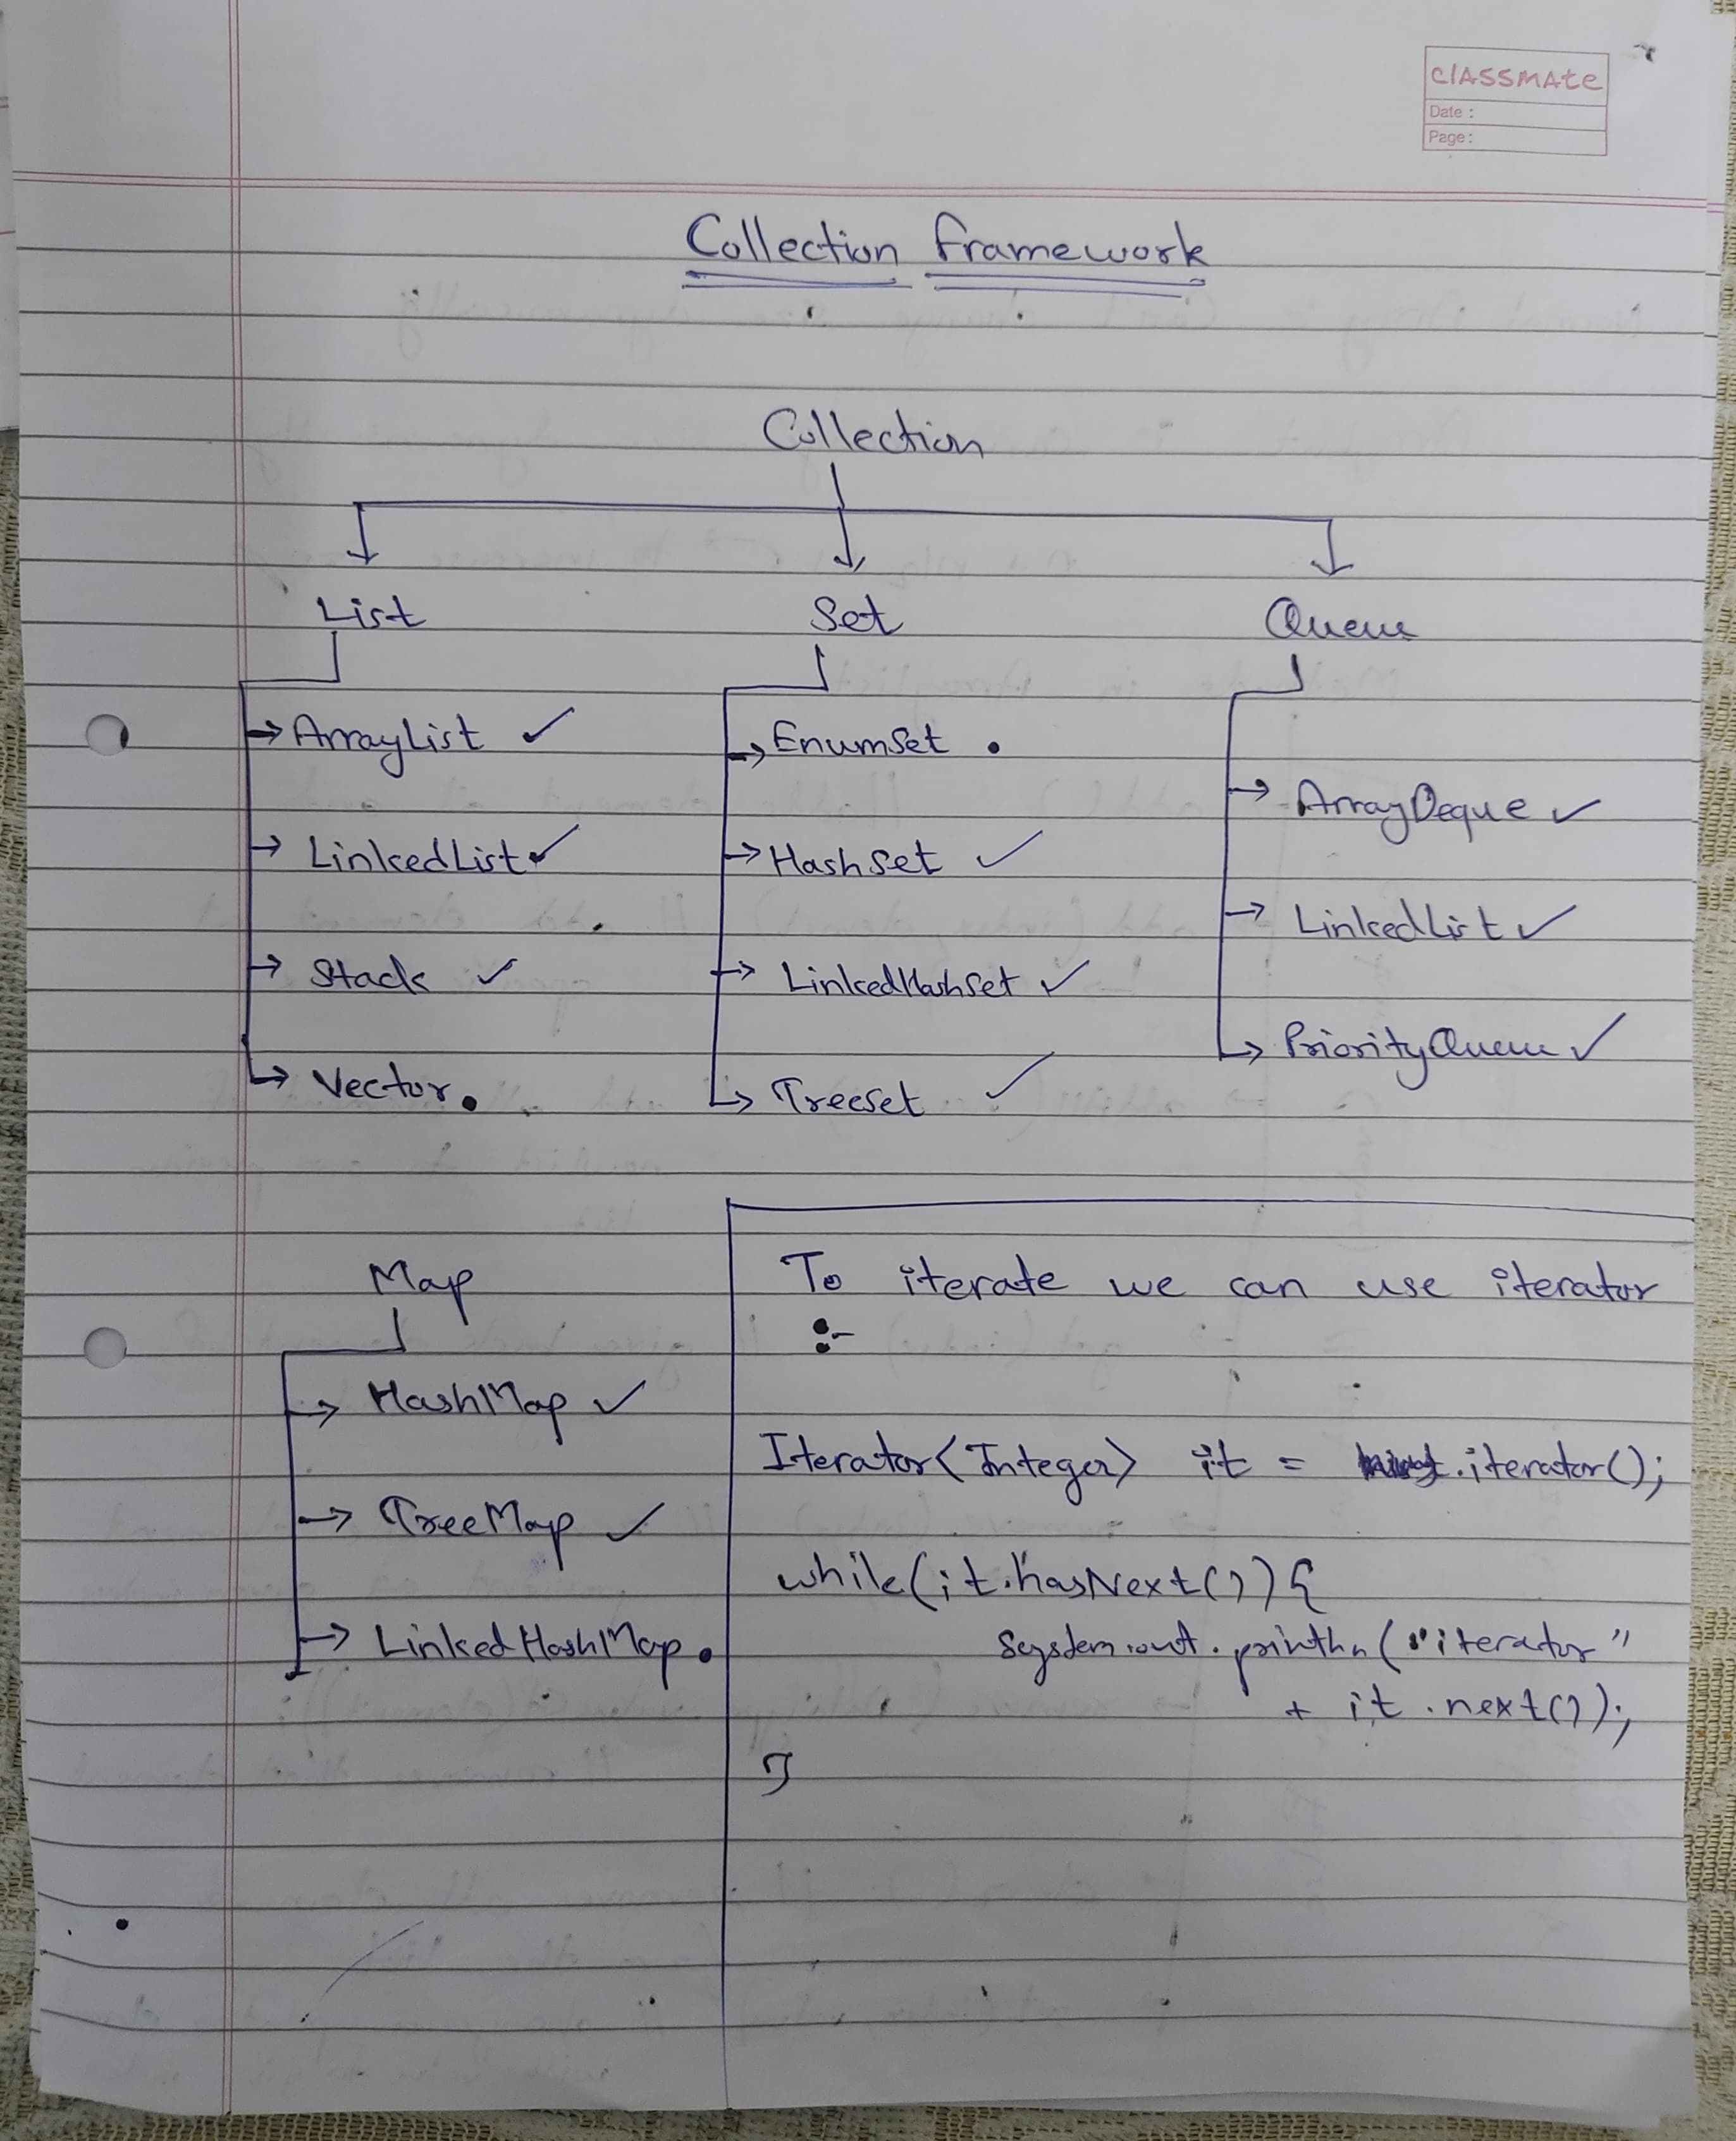 classmate
Date :
Page :
Collection framework
Collection
List
Set
Queue
→ ArrayList ✓
→ LinkedList ✓
→ Stack ✓
→ Vector •
→ EnumSet •
→ HashSet ✓
→ LinkedHashSet ✓
→ TreeSet ✓
→ ArrayDeque ✓
→ LinkedList ✓
→ PriorityQueue ✓
Map
→ HashMap ✓
→ TreeMap ✓
→ LinkedHashMap •
To iterate we can use iterator
:-
Iterator<Integer> it = .iterator();
while(it.hasNext()){
System.out.println("iterator"
+ it.next();
}